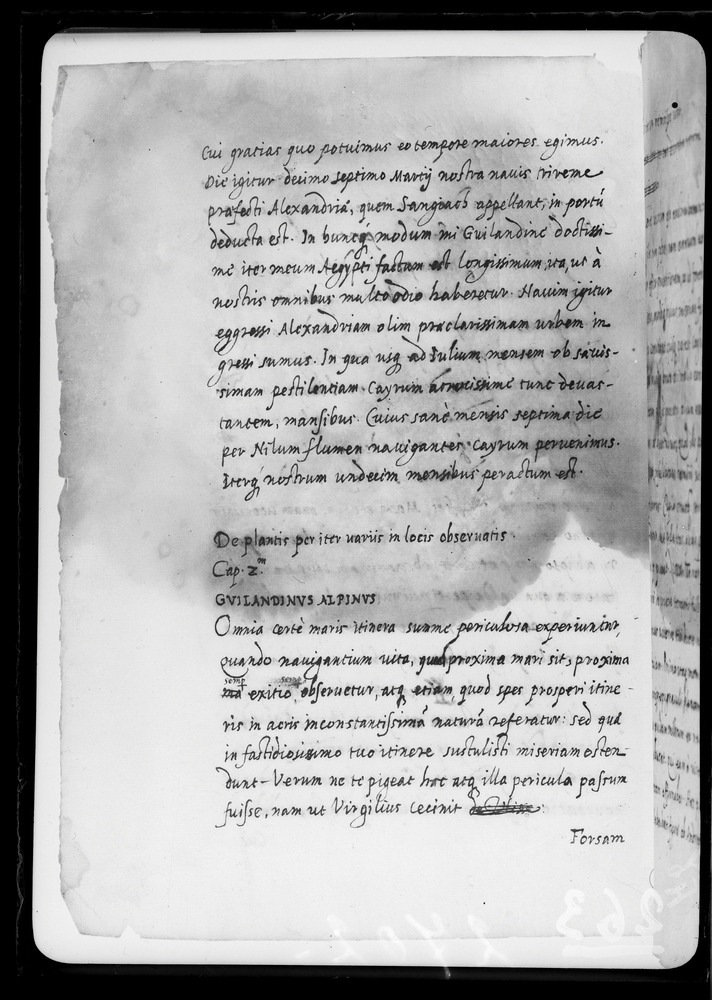 Cui gratias quo potuimus eo tempore maiores egimus.
Die igitur decimo septimo Martij nostra nauis trireme
præfecti Alexandriæ, quem Sangiach appellant, in portũ
deducta est. In huncq modum mi Guilandine doctissi-
me iter meum Aegypti factum est longissimum, ita, ut à
nostris omnibus multo odio haberetur. Nauim igitur
eggressi Alexandriam olim præclarissimam urbem in
gressi sumus. In qua usq ad Iulium mensem ob sæuis-
simam pestilentiam Cayrum atrocissime tunc deuas-
tantem, mansibus. Cuius sanè mensis septima die
per Nilum flumen nauigantes Cayrum peruenimus.
Iterq nostrum undecim mensibus peractum est.
De plantis per iter variis in locis obseruatis.
Cap. 2.m
GVILANDINVS ALPINVS
Omnia certè maris itinera summe periculosa experiuntur,
quando nauigantium vita, proxima mari sit, proxima
semp
exitio obseruetur, atq etiam, quod spes prosperi itine-
ris in aeris inconstantissimâ naturâ referatur: sed quæ
in fastidiosissimo tuo itinere sustulisti miseriam osten-
dunt. Verum ne te pigeat hæc atq illa pericula passum
fuisse, nam ut Virgilius cecinit
Forsam
263